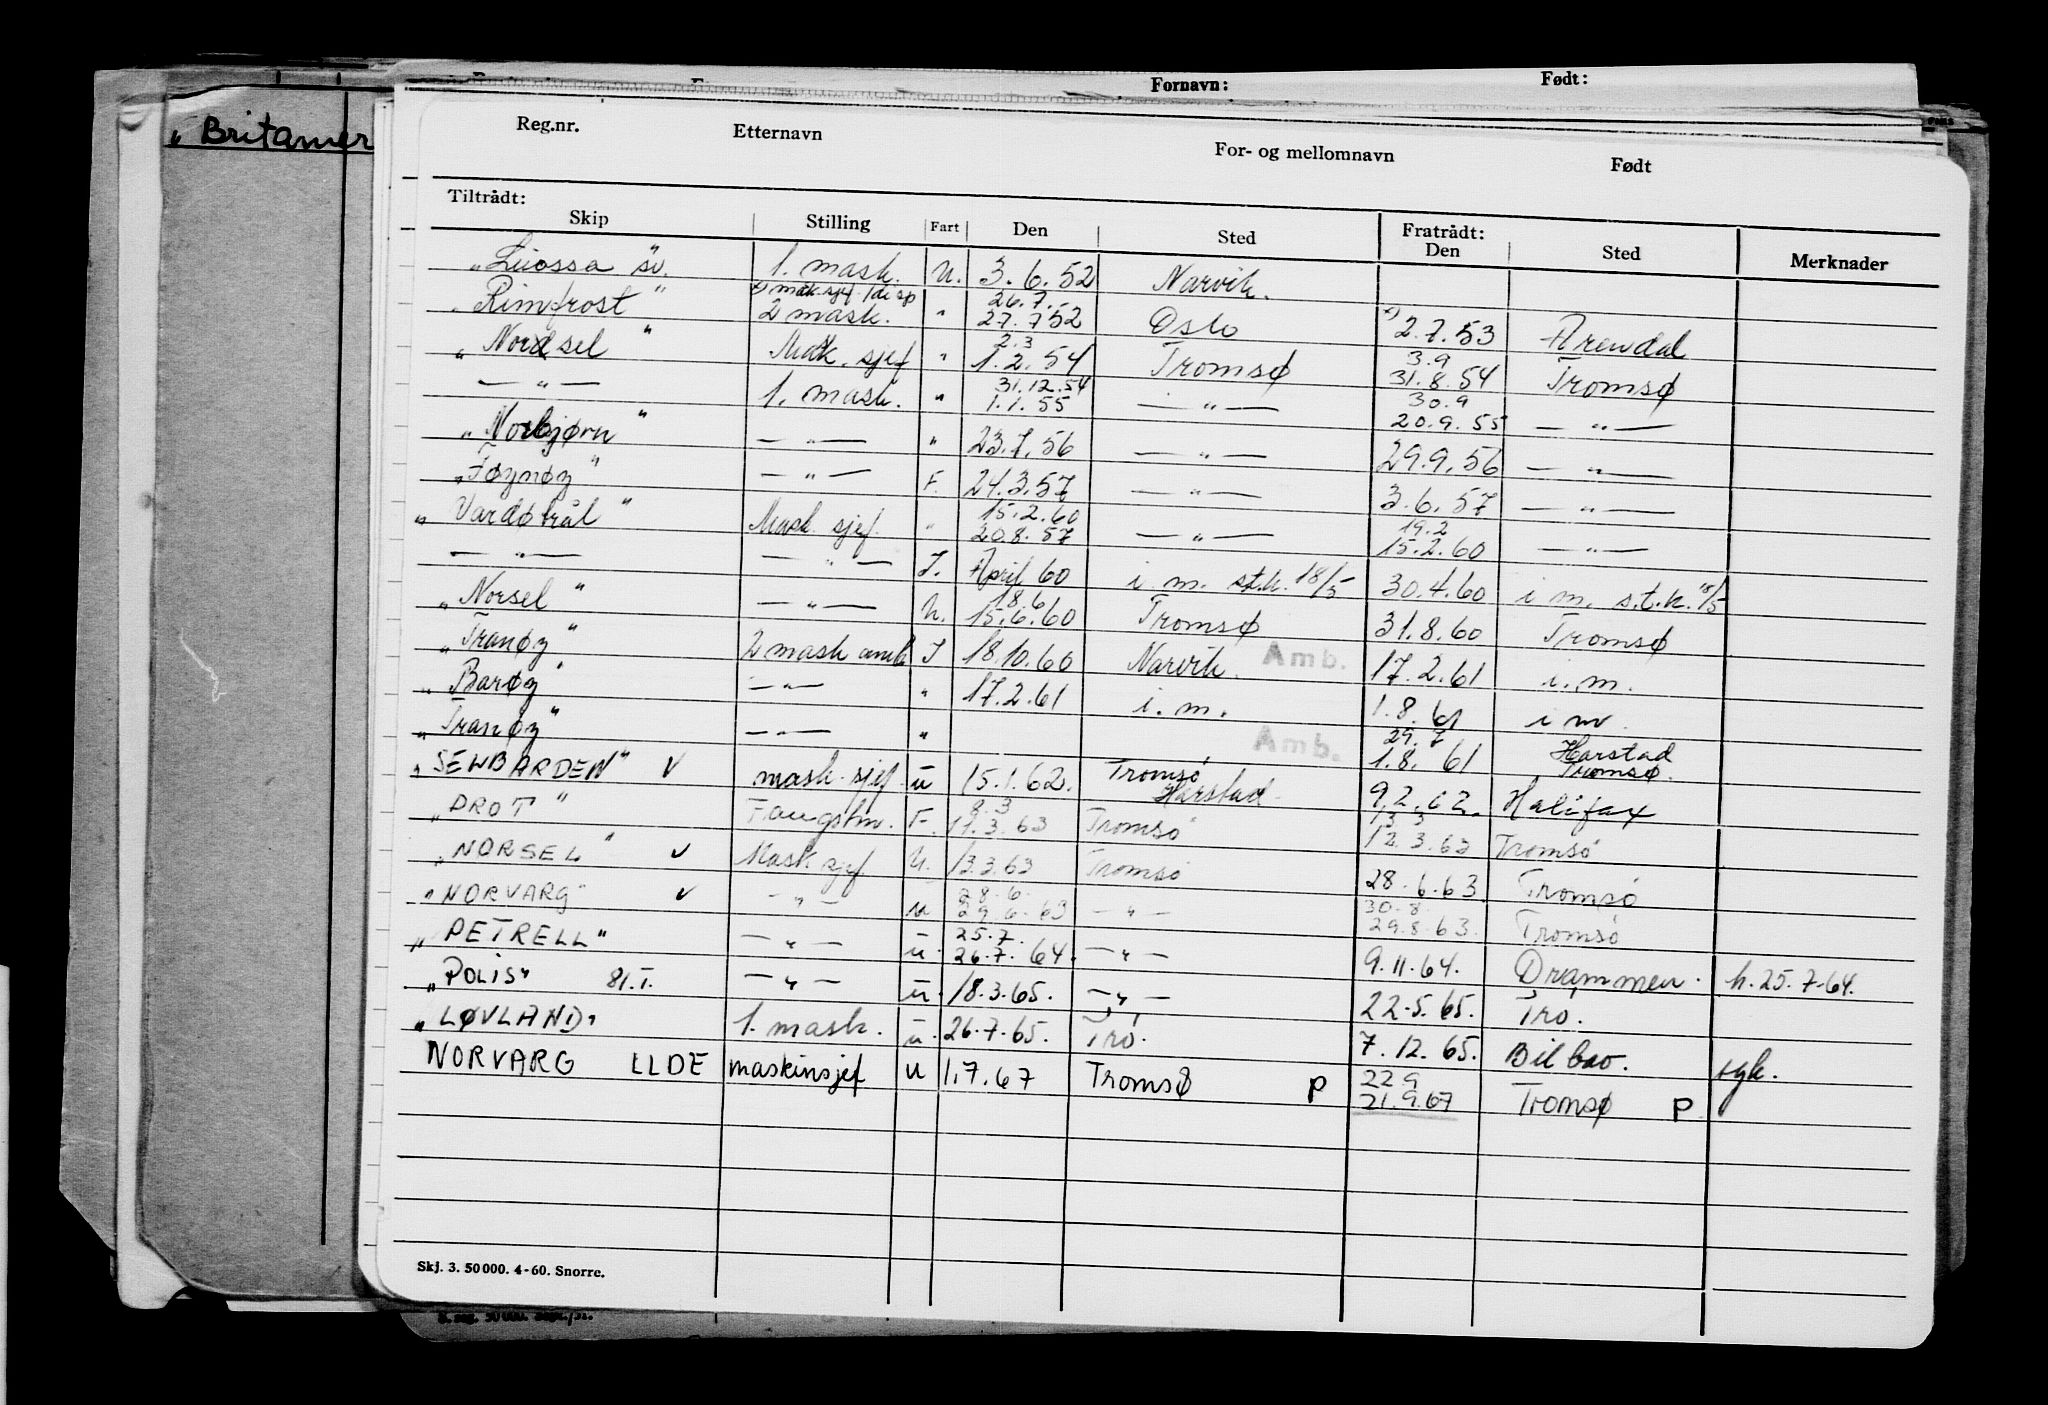 Fornavn: Født:
„Britamer
Reg.nr. Etternavn For- og mellomnavn Født
Tiltrådt: Fratrådt:
Skip Stilling Fart Den Sted Den Sted Merknader
„Luossa" sv. 1. mask. U. 3.6.52 Narvik.
mask.sjef /disp 26.7.
„Rimfrost" 2 mask. " 27.7 52 Oslo 2.7.53 Arendal
2.3 3.9
„Nordsel" Mask. sjef " 1.2.54 Tromsø 31.8.54 Tromsø
31.12.54 30.9
— " — 1. mask. " 1.1.55 — " — 20.9.55 — " —
„Norbjørn" — " — " 23.7.56 — " — 29.9.56 — " —
„Føynøy" — " — F. 24.3.57 — " — 3.6.57 — " —
15.2.60 19.2
„Vardøtrål" Mask. sjef " 20.8.57 — " — 15.2.60 — " —
— " — — " — I. April 60 i m. st.k. 18/5 30.4.60 i m. s.t.k. 18/5
18.6
„Norsel" — " — U. 15.6.60 Tromsø 31.8.60 Tromsø
„Tranøy" 2 mask amb I 18.10.60 Narvik. Amb. 17.2.61 i.m.
„Barøy" — " — " 17.2.61 i.m. 1.8.61 i m.
29.7 Harstad
„Tranøy" — " — " Amb. 1.8.61 Tromsø.
„SEWBARDEN" V mask. sjef u 15.1.62. Tromsø Harstad 9.2.62. Halifax
8.3 13.3
„DROT" Fangstm. F. 11.3.63 Tromsø 12.3.63 Tromsø
„NORSEL" V Mask sjef U. 13.3.63 Tromsø 28.6.63. Tromsø
28.6. 30.8.
„NORVARG" V — " — u 29.6.63 — " — 29.8.63. Tromsø
25.7.
„PETRELL" — " — u. 26.7.64. — " — 9.11.64. Drammen. h. 25.7.64.
„POLIS" 81.I. — " — u. 18.3.65. — " — 22.5.65. Trø.
„LØVLAND" 1. mask. u. 26.7.65. Trø. 7.12.65. Bilbao. syk.
22.9
NORVARG LLDE maskinsjef u 1.7.67 Tromsø P 21.9.67 Tromsø P
Skj. 3. 50 000. 4-60. Snorre.